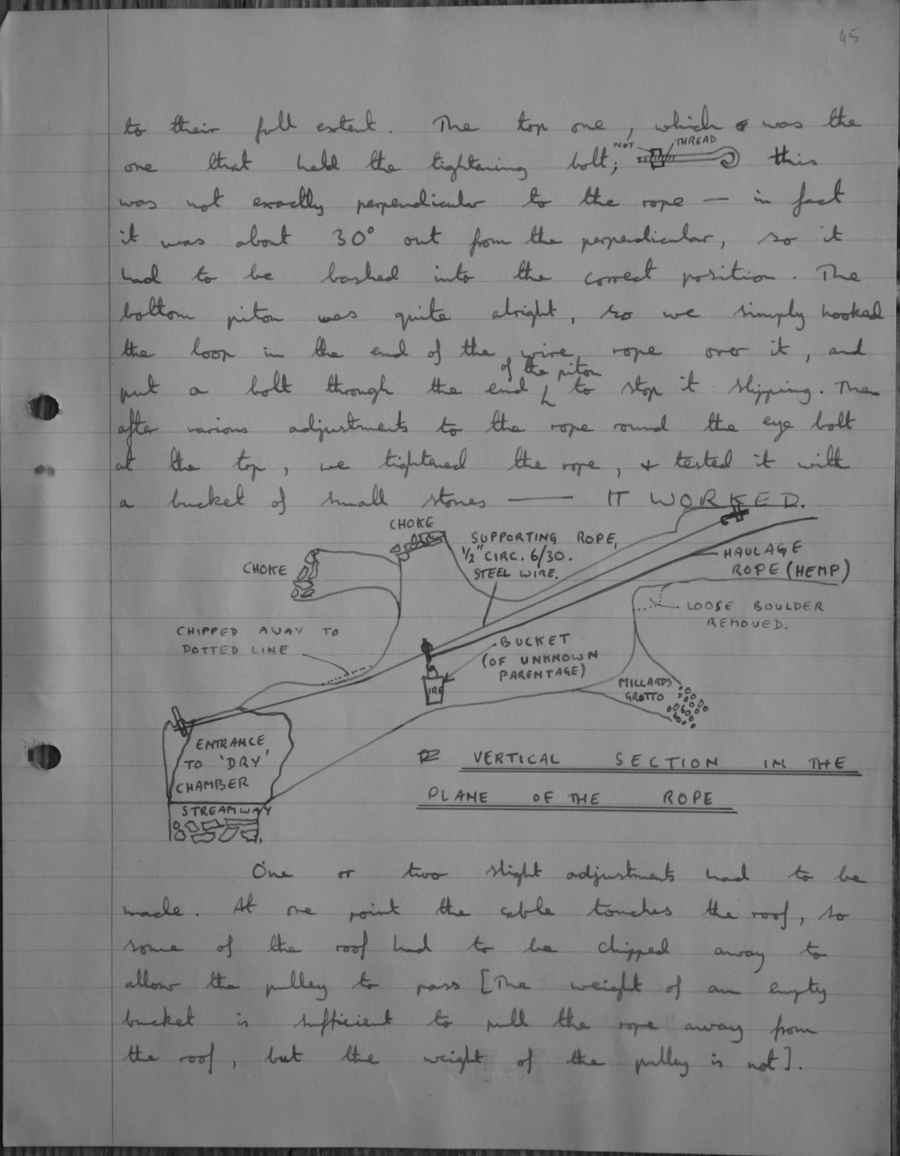 45
to their full extent. The top one, which was the
one that held the tightening bolt; this
NUT THREAD
was not exactly perpendicular to the rope — in fact
it was about 30° out from the perpendicular, so it
had to be bashed into the correct position. The
bottom piton was quite alright, so we simply hooked
the loop in the end of the wire rope over it, and
of the piton
put a bolt through the end to stop it slipping. Then
after various adjustments to the rope round the eye bolt
at the top, we tightened the rope, & tested it with
a bucket of small stones —— IT WORKED.
CHOKE
SUPPORTING ROPE,
½" CIRC. 6/30.
STEEL WIRE.
HAULAGE
ROPE (HEMP)
CHOKE
LOOSE BOULDER
REMOVED.
CHIPPED AWAY TO
DOTTED LINE
BUCKET
(OF UNKNOWN
PARENTAGE)
MILLARDS
GROTTO
ENTRANCE
TO 'DRY'
CHAMBER
STREAMWAY
VERTICAL SECTION IN THE
PLANE OF THE ROPE
One or two slight adjustments had to be
made. At one point the cable touches the roof, so
some of the roof had to be chipped away to
allow the pulley to pass [The weight of an empty
bucket is sufficient to pull the rope away from
the roof, but the weight of the pulley is not].